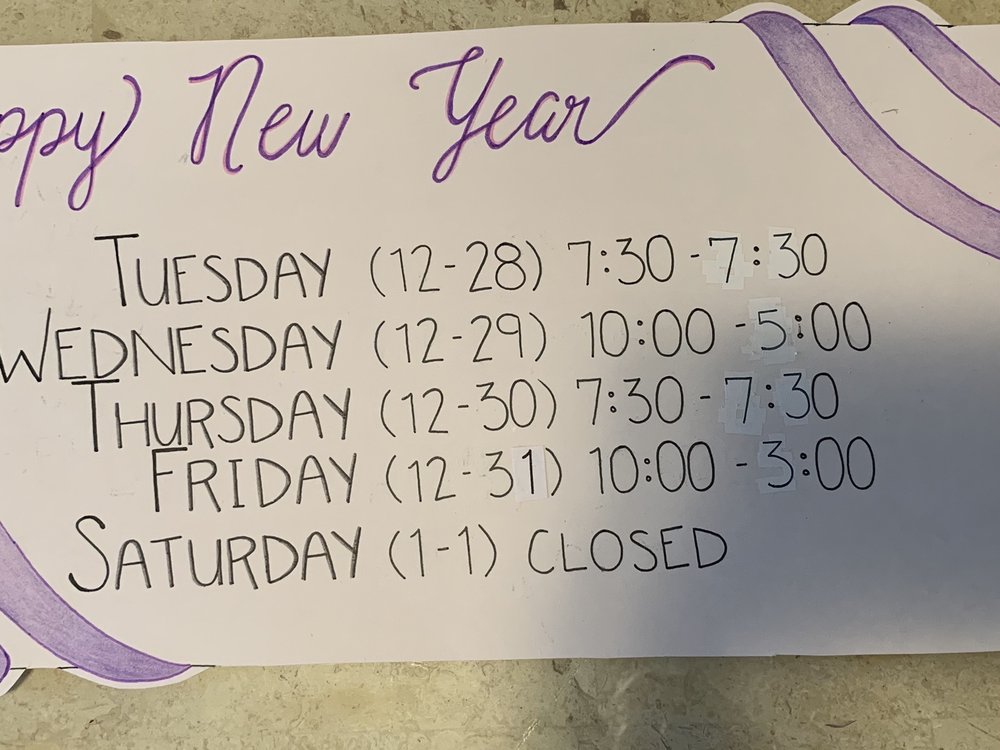 ppy New Year
TUESDAY (12-28) 7:30 - 7:30
WEDNESDAY (12-29) 10:00 - 5:00
THURSDAY (12-30) 7:30 - 7:30
FRIDAY (12-31) 10:00 - 3:00
SATURDAY (1-1) CLOSED